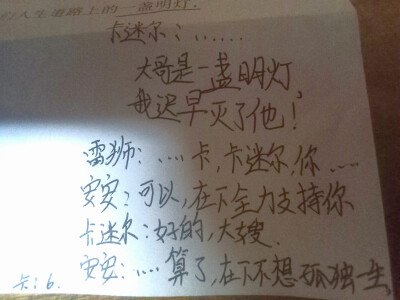 人生道路上的一盏明灯.
卡迷尔:……
大哥是一盏明灯,
我迟早灭了他!
雷狮:….卡,卡迷尔,你….
安安:可以,在下全力支持你
卡迷尔:好的,大嫂.
安安:….算了,在下不想孤独一生
卡:6.